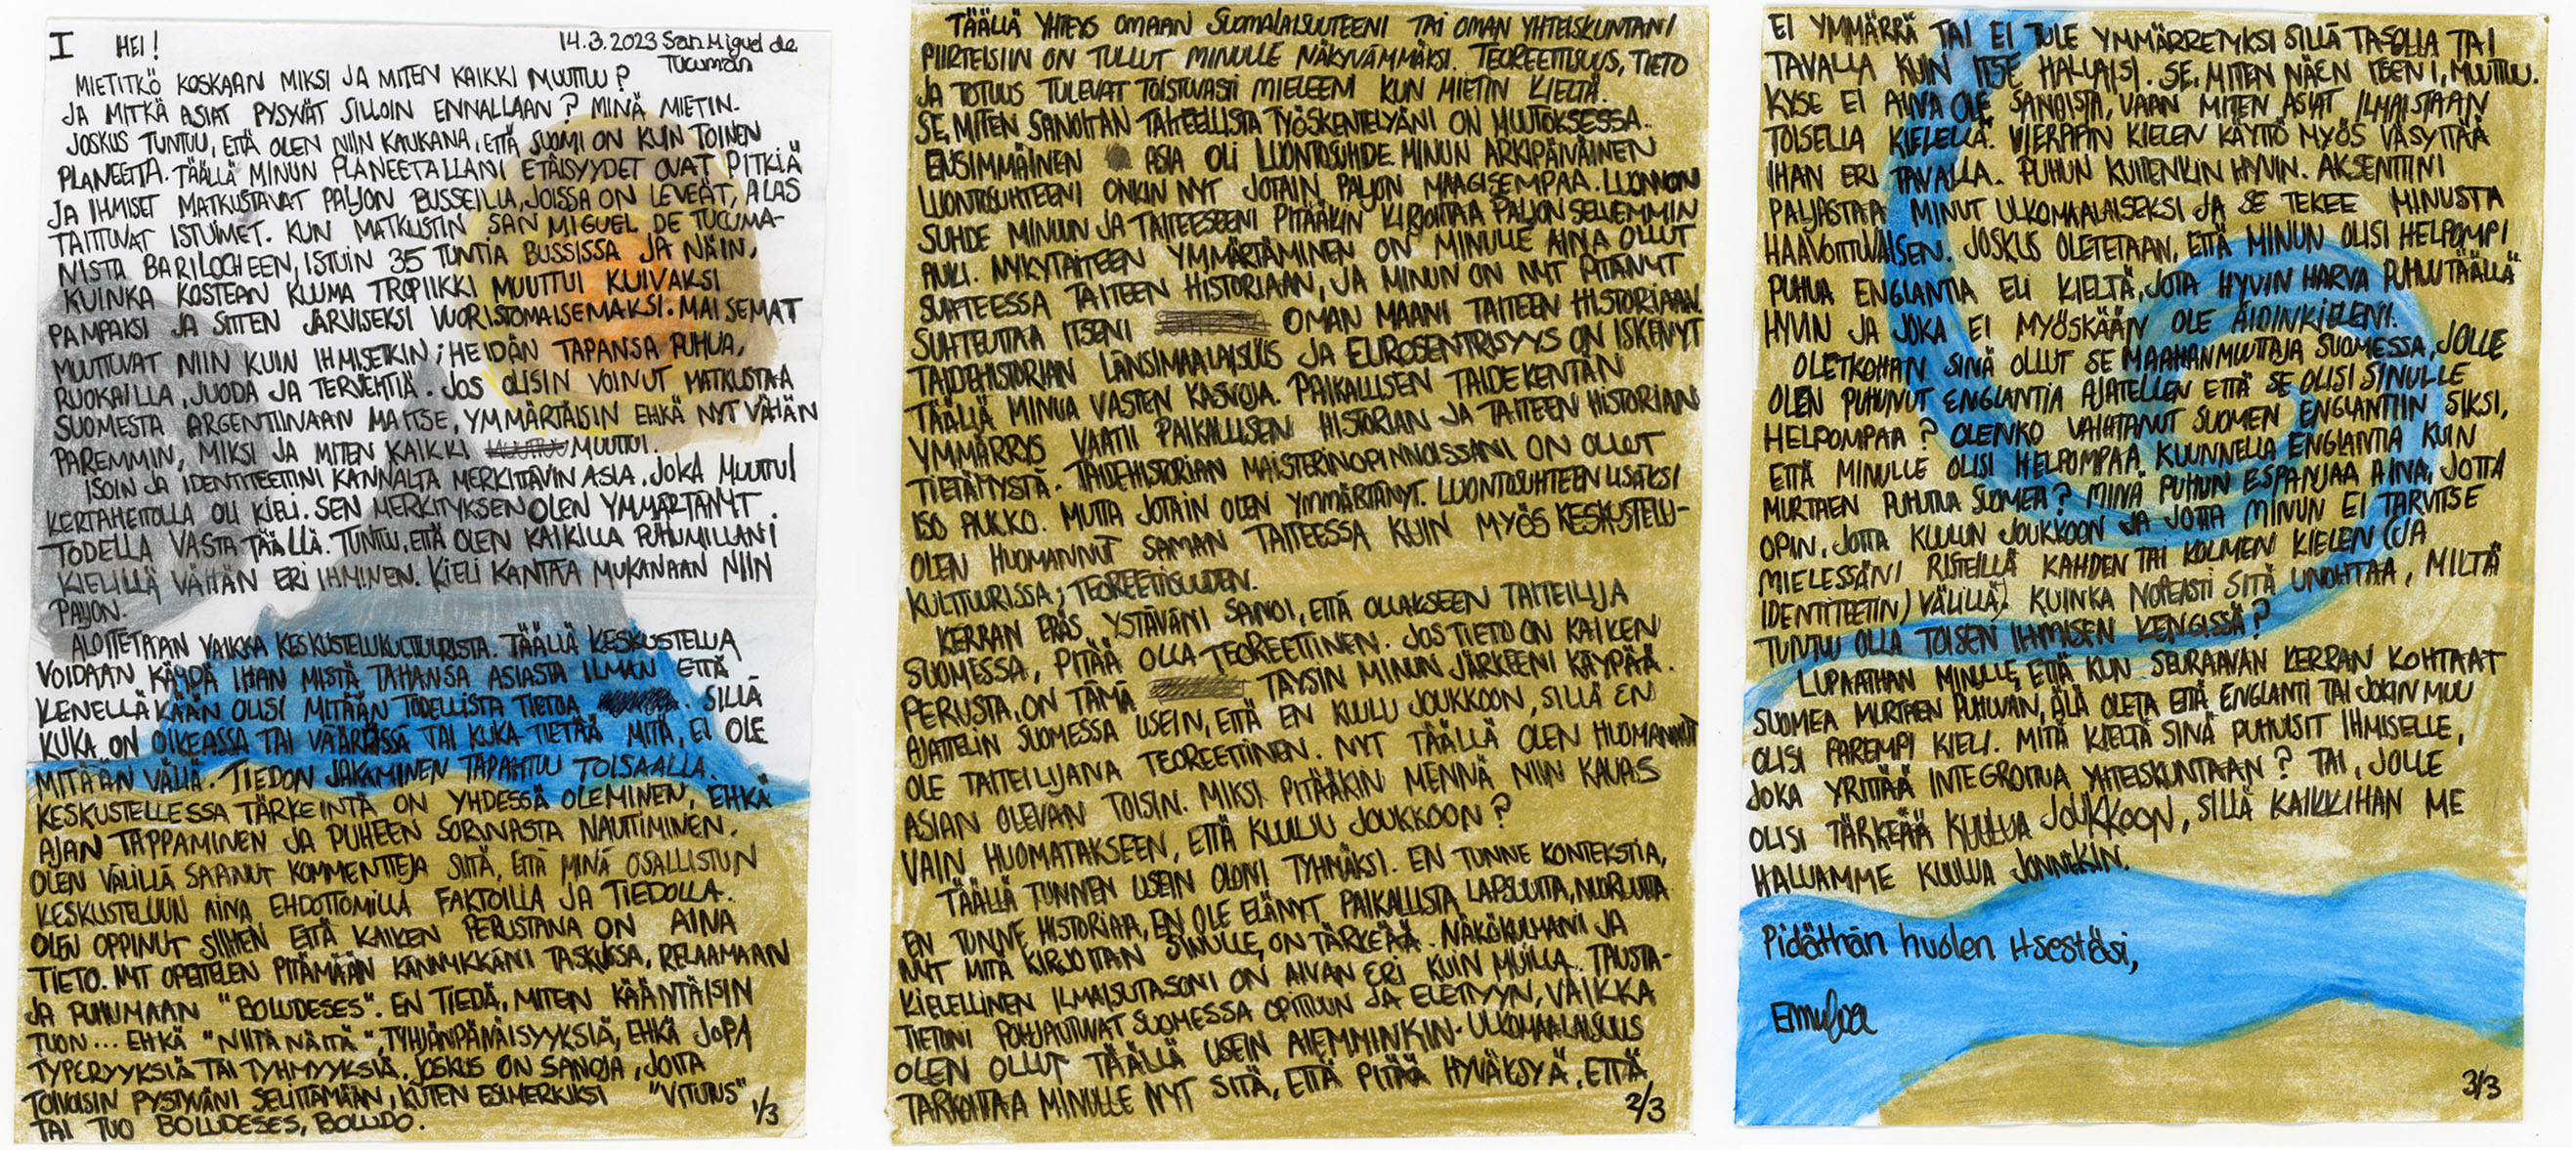 I HEI! 14.3.2023 San Miguel de
Tucumán
MIETITKÖ KOSKAAN MIKSI JA MITEN KAIKKI MUUTTUU?
JA MITKÄ ASIAT PYSYVÄT SILLOIN ENNALLAAN? MINÄ MIETIN.
JOSKUS TUNTUU, ETTÄ OLEN NIIN KAUKANA, ETTÄ SUOMI ON KUIN TOINEN
PLANEETTA. TÄÄLLÄ MINUN PLANEETALLANI ETÄISYYDET OVAT PITKIÄ
JA IHMISET MATKUSTAVAT PALJON BUSSEILLA, JOISSA ON LEVEÄT, ALAS
TAITTUVAT ISTUIMET. KUN MATKUSTIN SAN MIGUEL DE TUCUMA-
NISTA BARILOCHEEN, ISTUIN 35 TUNTIA BUSSISSA JA NÄIN,
KUINKA KOSTEAN KUUMA TROPIIKKI MUUTTUI KUIVAKSI
PAMPAKSI JA SITTEN JÄRVISEKSI VUORISTOMAISEMAKSI. MAISEMAT
MUUTTUVAT NIIN KUIN IHMISETKIN; HEIDÄN TAPANSA PUHUA,
RUOKAILLA, JUODA JA TERVEHTIÄ. JOS OLISIN VOINUT MATKUSTAA
SUOMESTA ARGENTIINAAN MAITSE, YMMÄRTÄISIN EHKÄ NYT VÄHÄN
PAREMMIN, MIKSI JA MITEN KAIKKI MUUTTUI.
ISOIN JA IDENTITEETTINI KANNALTA MERKITTÄVIN ASIA, JOKA MUUTTUI
KERTAHEITOLLA OLI KIELI. SEN MERKITYKSEN OLEN YMMÄRTÄNYT
TODELLA VASTA TÄÄLLÄ. TUNTUU, ETTÄ OLEN KAIKILLA PUHUMILLANI
KIELILLÄ VÄHÄN ERI IHMINEN. KIELI KANTAA MUKANAAN NIIN
PALJON.
ALOITETAAN VAIKKA KESKUSTELUKULTTUURISTA. TÄÄLLÄ KESKUSTELUA
VOIDAAN KÄYDÄ IHAN MISTÄ TAHANSA ASIASTA ILMAN ETTÄ
KENELLÄKÄÄN OLISI MITÄÄN TODELLISTA TIETOA. SILLÄ
KUKA ON OIKEASSA TAI VÄÄRÄSSÄ TAI KUKA TIETÄÄ MITÄ, EI OLE
MITÄÄN VÄLIÄ. TIEDON JAKAMINEN TAPAHTUU TOISAALLA.
KESKUSTELLESSA TÄRKEINTÄ ON YHDESSÄ OLEMINEN, EHKÄ
AJAN TAPPAMINEN JA PUHEEN SORINASTA NAUTTIMINEN.
OLEN VÄLILLÄ SAANUT KOMMENTTEJA SIITÄ, ETTÄ MINÄ OSALLISTUN
KESKUSTELUUN AINA EHDOTTOMILLA FAKTOILLA JA TIEDOLLA.
OLEN OPPINUT SIIHEN ETTÄ KAIKEN PERUSTANA ON AINA
TIETO. NYT OPETTELEN PITÄMÄÄN KÄNNYKKÄNI TASKUSSA, RELAAMAAN
JA PUHUMAAN "BOLUDESES". EN TIEDÄ, MITEN KÄÄNTÄISIN
TUON... EHKÄ "NIITÄ NÄITÄ", TYHJÄNPÄIVÄISYYKSIÄ, EHKÄ JOPA
TYPERYYKSIÄ TAI TYHMYYKSIÄ. JOSKUS ON SANOJA, JOITA
TOIVOISIN PYSTYVÄNI SELITTÄMÄÄN, KUTEN ESIMERKIKSI "VITUTUS"
TAI TUO BOLUDESES, BOLUDO.
1/3
TÄÄLLÄ YHTEYS OMAAN SUOMALAISUUTEENI TAI OMAN YHTEISKUNTANI
PIIRTEISIIN ON TULLUT MINULLE NÄKYVÄMMÄKSI. TEOREETTISUUS, TIETO
JA TOTUUS TULEVAT TOISTUVASTI MIELEENI KUN MIETIN KIELTÄ.
SE, MITEN SANOITAN TAITEELLISTA TYÖSKENTELYÄNI ON MUUTOKSESSA.
ENSIMMÄINEN ASIA OLI LUONTOSUHDE. MINUN ARKIPÄIVÄINEN
LUONTOSUHTEENI ONKIN NYT JOTAIN PALJON MAAGISEMPAA. LUONNON
SUHDE MINUUN JA TAITEESEENI PITÄÄKIN KIRJOITTAA PALJON SELVEMMIN
AUKI. NYKYTAITEEN YMMÄRTÄMINEN ON MINULLE AINA OLLUT
SUHTEESSA TAITEEN HISTORIAAN, JA MINUN ON NYT PITÄNYT
SUHTEUTTAA ITSENI OMAN MAANI TAITEEN HISTORIAAN.
TAIDEHISTORIAN LÄNSIMAALAISUUS JA EUROSENTRISYYS ON ISKENYT
TÄÄLLÄ MINUA VASTEN KASVOJA. PAIKALLISEN TAIDEKENTÄN
YMMÄRRYS VAATII PAIKALLISEN HISTORIAN JA TAITEEN HISTORIAN
TIETÄMYSTÄ. TAIDEHISTORIAN MAISTERINOPINNOISSANI ON OLLUT
ISO AUKKO. MUTTA JOTAIN OLEN YMMÄRTÄNYT. LUONTOSUHTEEN LISÄKSI
OLEN HUOMANNUT SAMAN TAITEESSA KUIN MYÖS KESKUSTELU-
KULTTUURISSA; TEOREETTISUUDEN.
KERRAN ERÄS YSTÄVÄNI SANOI, ETTÄ OLLAKSEEN TAITEILIJA
SUOMESSA, PITÄÄ OLLA TEOREETTINEN. JOS TIETO ON KAIKEN
PERUSTA, ON TÄMÄ TÄYSIN MINUN JÄRKEENI KÄYPÄÄ.
AJATTELIN SUOMESSA USEIN, ETTÄ EN KUULU JOUKKOON, SILLÄ EN
OLE TAITEILIJANA TEOREETTINEN. NYT TÄÄLLÄ OLEN HUOMANNUT
ASIAN OLEVAN TOISIN. MIKSI PITÄÄKIN MENNÄ NIIN KAUAS
VAIN HUOMATAKSEEN, ETTÄ KUULUU JOUKKOON?
TÄÄLLÄ TUNNEN USEIN OLONI TYHMÄKSI. EN TUNNE KONTEKSTIA,
EN TUNNE HISTORIAA, EN OLE ELÄNYT PAIKALLISTA LAPSUUTTA, NUORUUTTA.
NYT MITÄ KIRJOITAN SINULLE, ON TÄRKEÄÄ. NÄKÖKULMANI JA
KIELELLINEN ILMAISUTASONI ON AIVAN ERI KUIN MUILLA. TAUSTA-
TIETONI POHJAUTUVAT SUOMESSA OPITTUUN JA ELETTYYN, VAIKKA
OLEN OLLUT TÄÄLLÄ USEIN AIEMMINKIN. ULKOMAALAISUUS
TARKOITTAA MINULLE NYT SITÄ, ETTÄ PITÄÄ HYVÄKSYÄ, ETTÄ
2/3
EI YMMÄRRÄ TAI EI TULE YMMÄRRETYKSI SILLÄ TASOLLA TAI
TAVALLA KUIN ITSE HALUAISI. SE, MITEN NÄEN ITSENI, MUUTTUU.
KYSE EI AINA OLE SANOISTA, VAAN MITEN ASIAT ILMAISTAAN
TOISELLA KIELELLÄ. VIERAAN KIELEN KÄYTTÖ MYÖS VÄSYTTÄÄ
IHAN ERI TAVALLA. PUHUN KUITENKIN HYVIN. AKSENTTINI
PALJASTAA MINUT ULKOMAALAISEKSI JA SE TEKEE MINUSTA
HAAVOITTUVAISEN. JOSKUS OLETETAAN, ETTÄ MINUN OLISI HELPOMPI
PUHUA ENGLANTIA ELI KIELTÄ, JOTA HYVIN HARVA PUHUU TÄÄLLÄ
HYVIN JA JOKA EI MYÖSKÄÄN OLE ÄIDINKIELENI.
OLETKOHAN SINÄ OLLUT SE MAAHANMUUTTAJA SUOMESSA, JOLLE
OLEN PUHUNUT ENGLANTIA AJATELLEN ETTÄ SE OLISI SINULLE
HELPOMPAA? OLENKO VAIHTANUT SUOMEN ENGLANTIIN SIKSI,
ETTÄ MINULLE OLISI HELPOMPAA KUUNNELLA ENGLANTIA KUIN
MURTAEN PUHUTTUA SUOMEA? MINÄ PUHUN ESPANJAA AINA, JOTTA
OPIN, JOTTA KUULUN JOUKKOON JA JOTTA MINUN EI TARVITSE
MIELESSÄNI RISTEILLÄ KAHDEN TAI KOLMEN KIELEN (JA
IDENTITEETIN) VÄLILLÄ). KUINKA NOPEASTI SITÄ UNOHTAA, MILTÄ
TUNTUU OLLA TOISEN IHMISEN KENGISSÄ?
LUPAATHAN MINULLE, ETTÄ KUN SEURAAVAN KERRAN KOHTAAT
SUOMEA MURTAEN PUHUVAN, ÄLÄ OLETA ETTÄ ENGLANTI TAI JOKIN MUU
OLISI PAREMPI KIELI. MITÄ KIELTÄ SINÄ PUHUISIT IHMISELLE,
JOKA YRITTÄÄ INTEGROITUA YHTEISKUNTAAN? TAI, JOLLE
OLISI TÄRKEÄÄ KUULUA JOUKKOON, SILLÄ KAIKKIHAN ME
HALUAMME KUULUA JONNEKIN.
Pidäthän huolen itsestäsi,
3/3